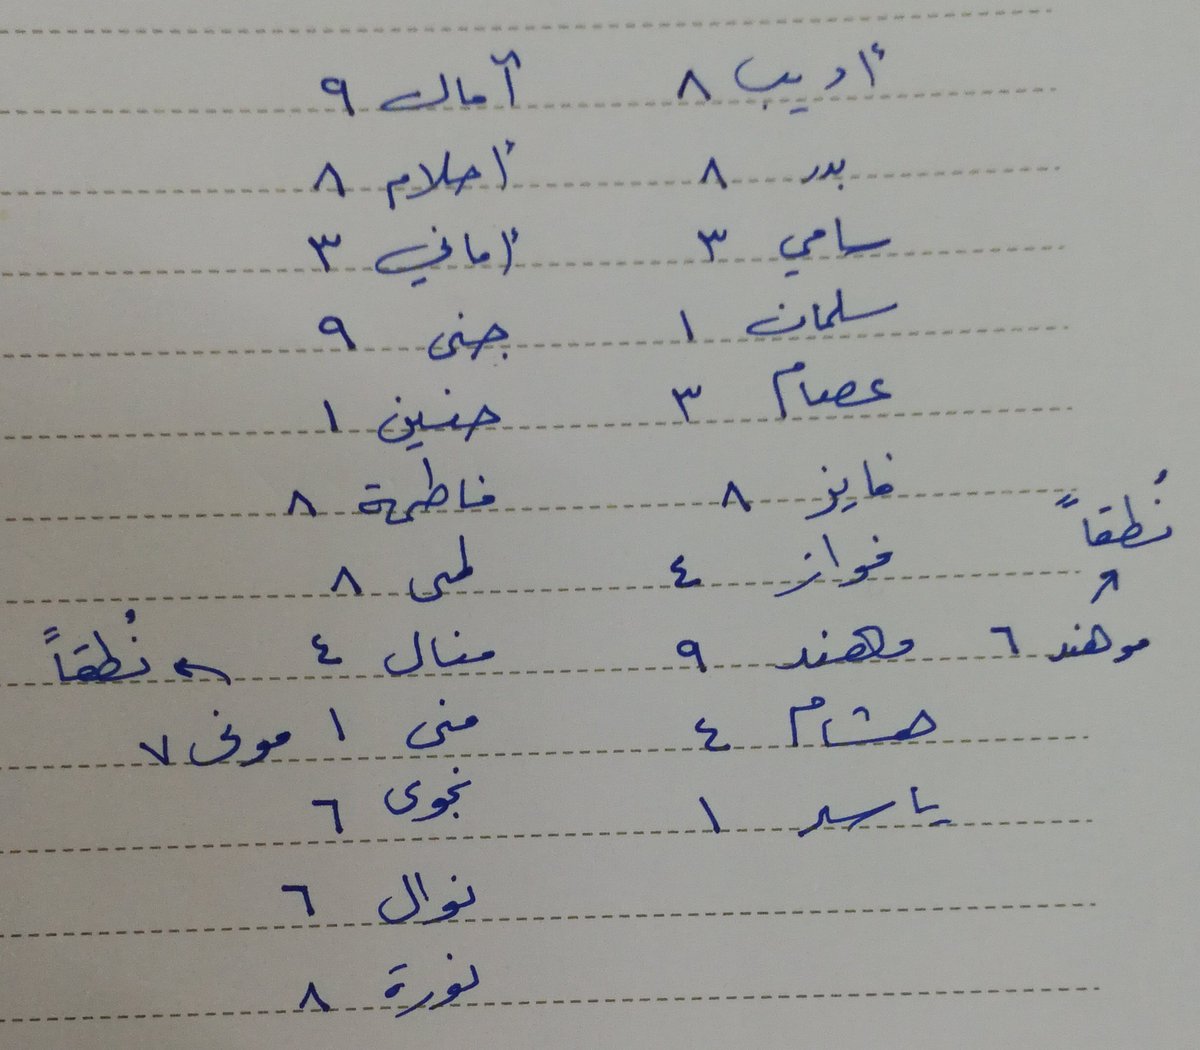 أديب ٨ آمال ٩
بدر ٨ أحلام ٨
سامي ٣ أماني ٣
سلمان ١ جنى ٩
عصام ٣ حنين ١
فايز ٨ فاطمة ٨
نُطقاً فواز ٤ لمى ٨
موهند ٦ مهند ٩ منال ٤ نُطقاً
هشام ٤ منى ١ مونى ٧
ياسر ١ نجوى ٦
نوال ٦
نورة ٨